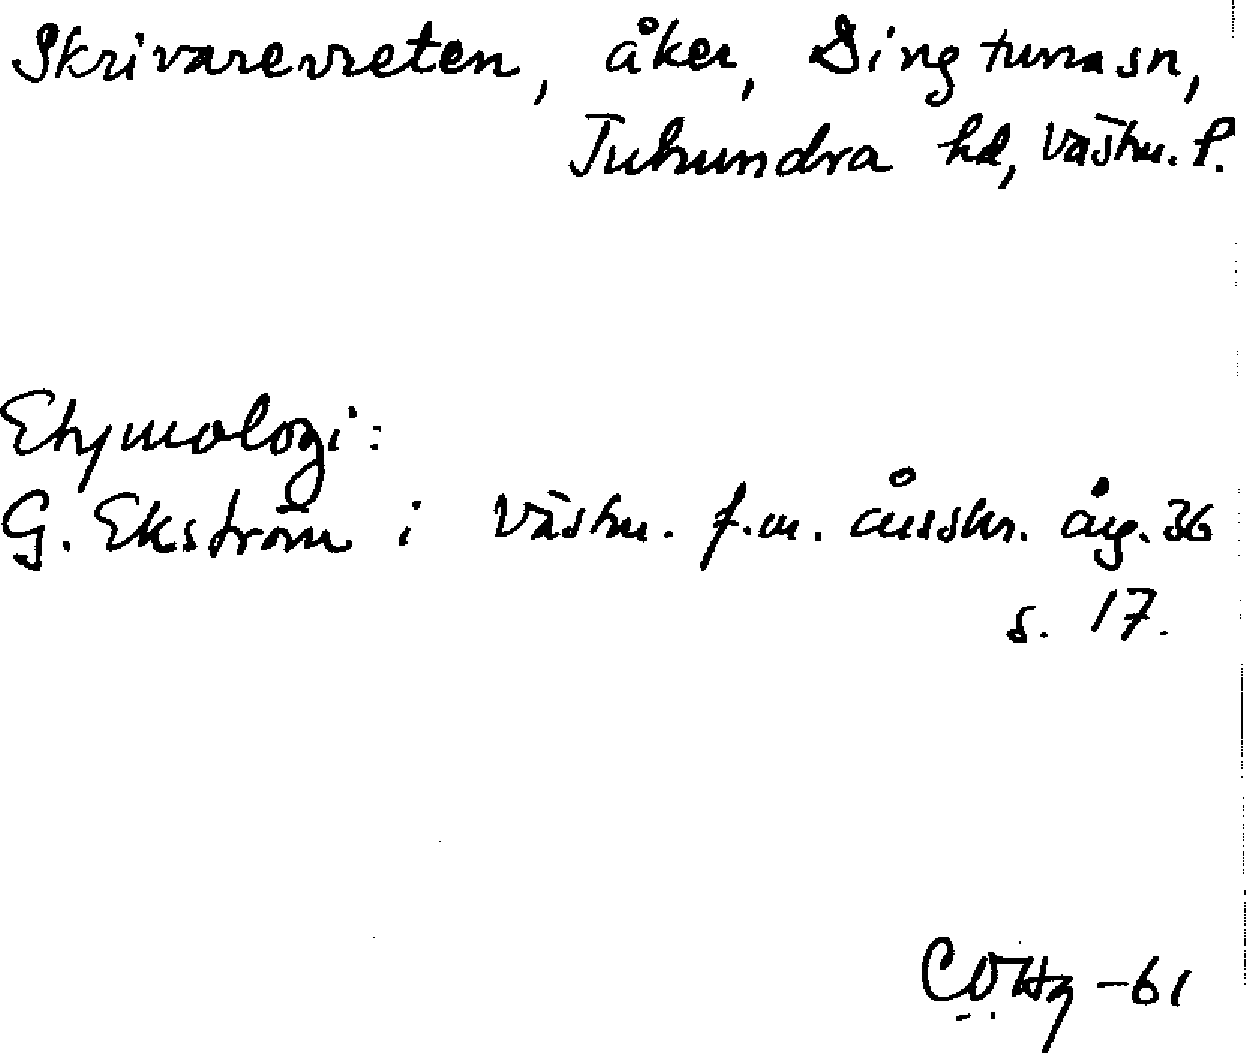 Skrivarevreten, åker, Dingtuna sn,
Tuhundra hd, Västm. l.
Etymologi:
G. Ekström i Västm. f.m. årsskr. årg. 36
s. 17.
-61